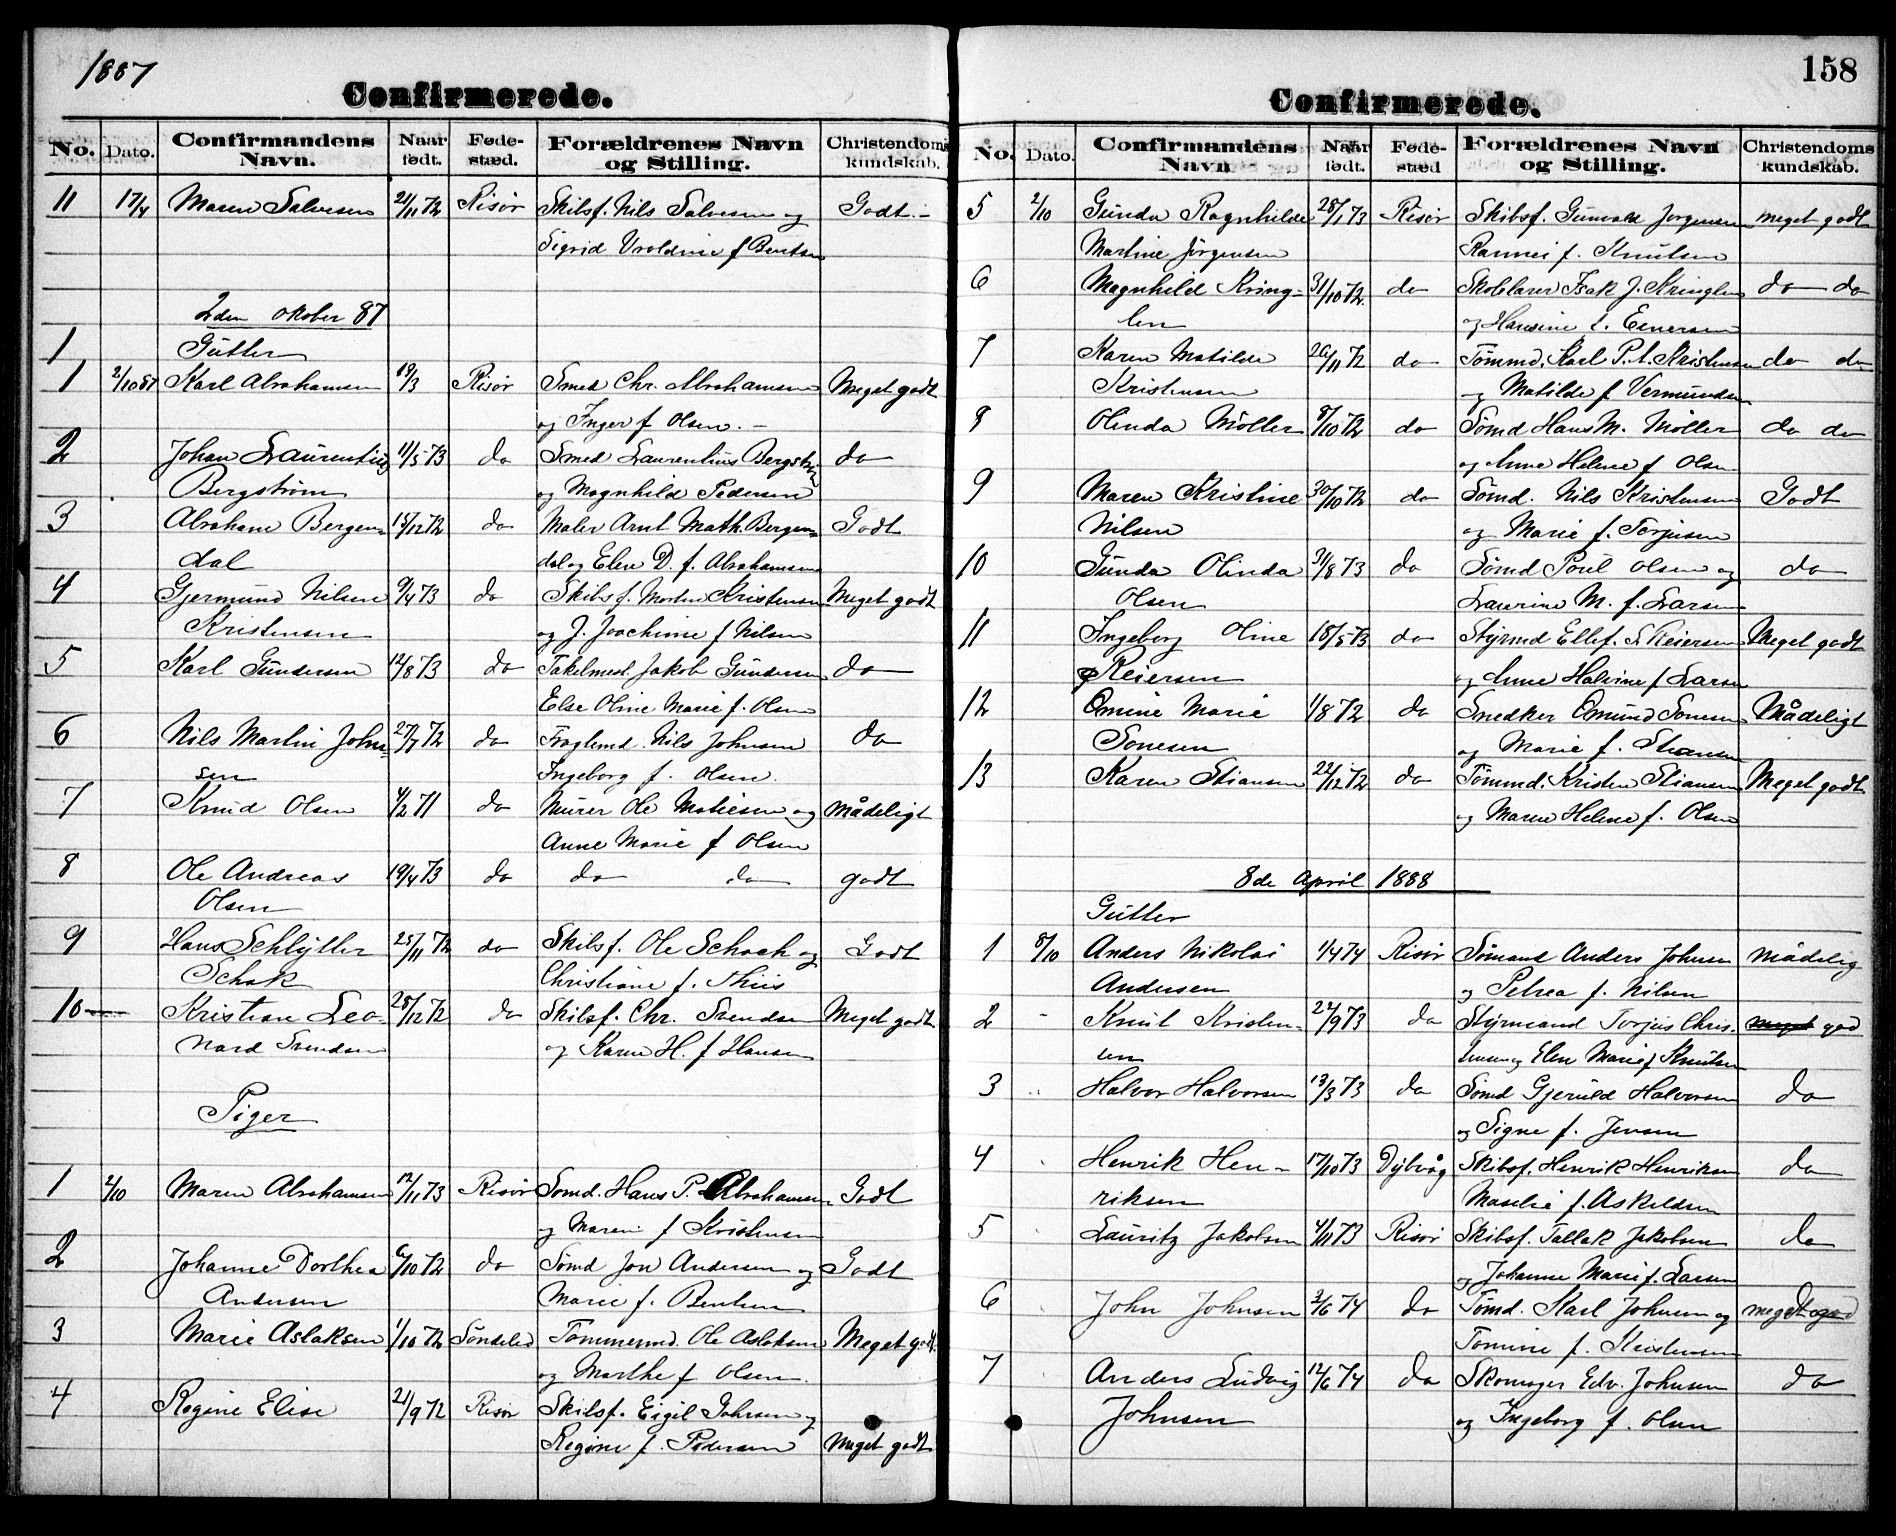 1887
Confirmerede.
No. Dato. Confirmandens Navn. Naar født.Føde-sted. Forældrenes Navn og Stilling. Christendoms kundskab.
11 17/4 Maren Salvesen 21/11 72 Risør Skibsf. Nils Salvesen og Godt.-
Sigrid f Bentsen
2den Oktober 87
1 Gutter
1 2/10 87 Karl Abrahamsen 19/3 Risør Smed Chr. Abrahamsen Meget godt
og Inger f Olsen.-
2 Johan Laurentius 11/5 73 do Smed Laurentius Bergstrøm do
Bergstrøm og Magnhild Pedersen
3 Abraham Bergen- 15/12 72 do Maler Arnt Math. Bergen- Godt
dal dal og Elen D. f. Abrahamsen
4 Gjermund Nilsen 9/4 73 do Skibsf. Morten Kristensen Meget godt
Kristensen og J. Joachime f Nilsen
5 Karl Gundersen 12/8 73 do Takelmest. Jakob Gundersen do
Else Oline Marie f. Olsen
6 Nils Martin John- 27/7 72 do Nils Johnsen do
sen Ingeborg f. Olsen.
7 Knud Olsen 4/2 71 do Murer Ole Matiesen og Mådeligt
Anne Marie f Olsen
8 Ole Andreas 19/4 73 do do do godt
Olsen
9 Hans Schlytter 25/11 72 do Skibsf. Ole Schach og Godt
Schak Christiane f. Thiis
10 Kristian Leo- 28/12 72 do Skibsf. Chr. Svendsen Meget godt
nard Svendsen og Karen H. f Hansen
Piger
1 2/10 Maren Abrahamsen 12/11 73 Risør Sømd. Hans P. Abrahamsen Godt
og Maren f Kristensen
2 Johanne Dorthea 6/10 72 do Sømd Jon Andersen og Godt
Andersen Marie f. Bentsen
3 Marie Aslaksen 1/10 72 Søndeled Tømmermd. Ole Aslaksen Meget godt
og Marthe f Olsen.
4 Regine Elise 21/9 72 Risør Skibsf. Eigil og
Regine f. Pedersen Meget godt
158
Confirmerede.
No. Dato. Confirmandens Navn Naar født. Føde-sted Forældrenes Navn og Stilling. Christendoms kundskab.
5 2/10 Gunda Ragnhilde 28/1 73 Risør Skibsf. Gunvald Jørgensen meget godt
Martine Jørgensen Rannei f. Knutsen
6 Magnhild Kring- 31/10 72 do Skolelærer Isak J. Kringlen do do
len og Hansine f. Einersen
7 Karen Matilde 26/11 72 do Tømmd. Karl P. A. Kristensen do do
Kristensen og Matilde f Vermundsen
8 Olinda Møller 8/10 72 do Sømd Hans M. Møller do do
og Anne Helene f Olsen
9 Maren Kristine 30/10 72 do Sømd. Nils Kristensen Godt
Nilsen og Marie f. Torjusen
10 Gunda Olinda 31/8 73 do Sømd Poul Olsen og do
Olsen Laurine M. f. Larsen
11 Ingeborg Oline 18/5 73 do Styrmd Ellef. S. Reiersen Meget godt
Reiersen og Anne Halvine f Larsen
12 Omine Marie 1/8 72 do Snedker Omund Sonesen Mådeligt
Sonesen og Marie f. Stiansen
13 Karen Stiansen 22/12 72 do Tømmd. Kristen Stiansen Meget godt
og Maren Helene f. Olsen
8de April 1888
Gutter
1 8/10 Anders Nikolai 1/4 74 Risør Sømand Anders Johnsen Mådelig
Andersen og Petrea f. Nilsen
2 - Knut Kristen- 22/9 73 do Styrmand Torjus Chris- meget god
sen tensen og Elen Marie f Knutsen
3 Halvor Halvorsen 13/3 73 do Sømd Gjeruld Halvorsen do
og Signe f. Jensen
4 Henrik Hen- 17/10 73 Dybvåg Skibsf. Henrik Henriksen do
riksen Maselia f. Askeldsen
5 Lauritz Jakobsen 4/11 73 Risør Skibsf. Tallak Jakobsen do
og Johanne Marie f. Larsen
6 John Johnsen 3/6 74 do Tømd. Karl Johnsen og meget god
Tomine f. Kristensen
7 Anders Ludvig 12/6 74 do Skomager Edv. Johnsen do
Johnsen og Ingeborg f. Olsen